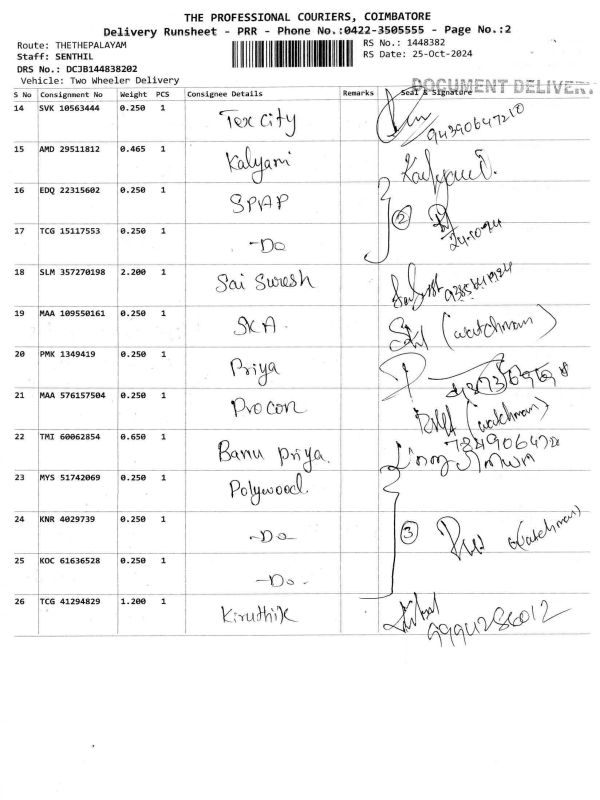 THE PROFESSIONAL COURIERS, COIMBATORE
Delivery Runsheet - PRR - Phone No.:0422-3505555 - Page No.:2
Route: THETHEPALAYAM
RS No.: 1448382
Staff: SENTHIL
RS Date: 25-Oct-2024
DRS No.: DCJB144838202
Vehicle: Two Wheeler Delivery
DOCUMENT DELIVERY
S No Consignment No Weight PCS Consignee Details Remarks Seal & Signature
14 SVK 10563444 0.250 1 Tex city
15 AMD 29511812 0.465 1 Kalyani
16 EDQ 22315602 0.250 1 SPAP
17 TCG 15117553 0.250 1 -Do 2 24-10-24
18 SLM 357270198 2.200 1 Sai Suresh
19 MAA 109550161 0.250 1 SKA. (watchman)
20 PMK 1349419 0.250 1 Priya
21 MAA 576157504 0.250 1 Procon (watchman)
22 TMI 60062854 0.650 1 Banu priya.
23 MYS 51742069 0.250 1 Polywood.
24 KNR 4029739 0.250 1 -Do- 3 (watchman)
25 KOC 61636528 0.250 1 -Do-
26 TCG 41294829 1.200 1 Kiruthik 9994286012